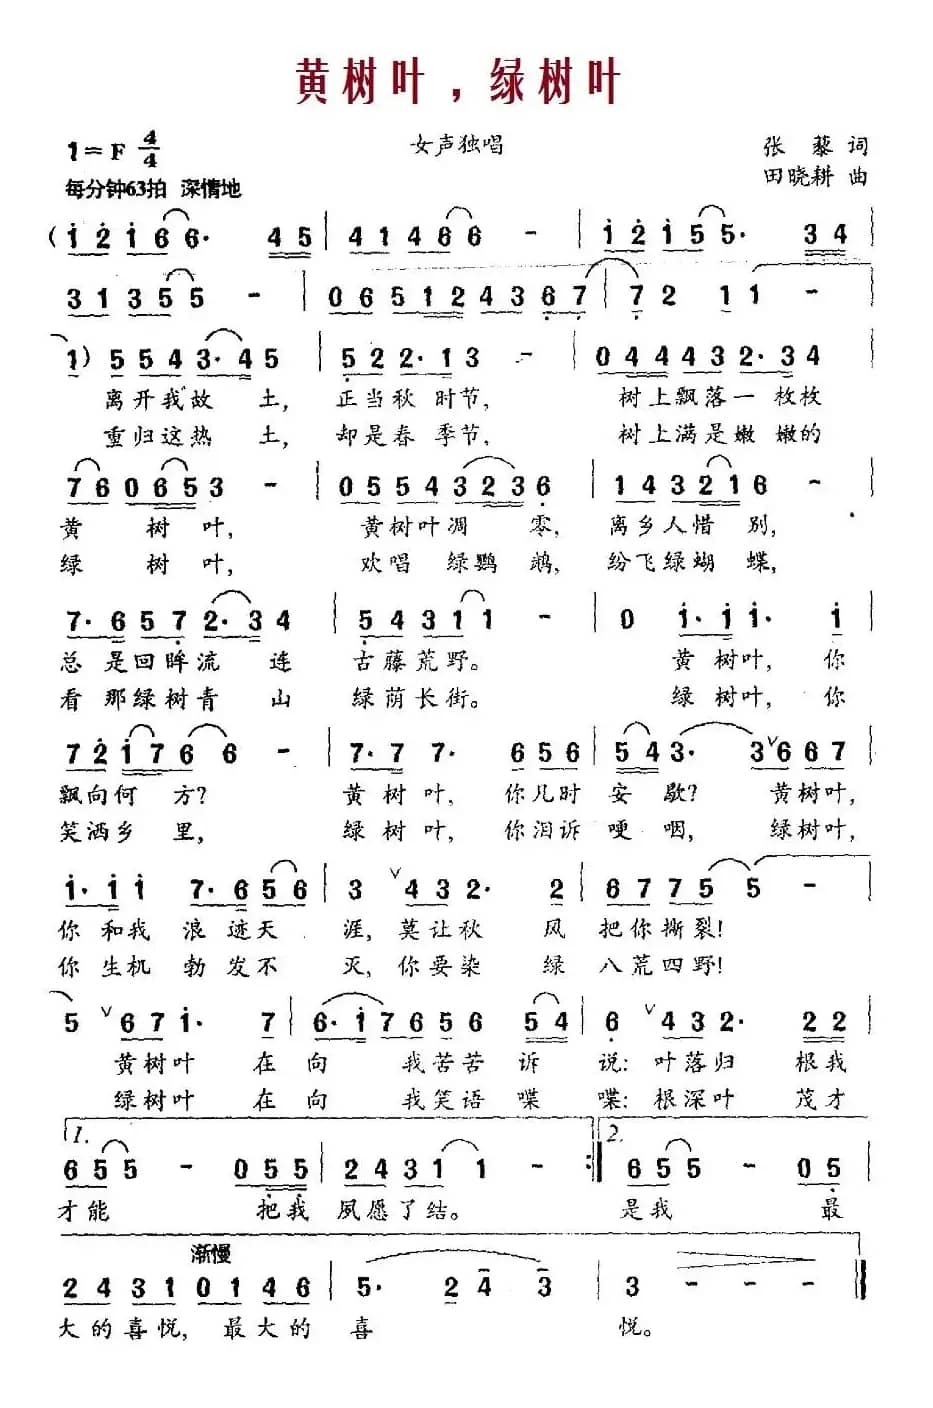 黄树叶，绿树叶
1=F 4/4 女声独唱 张藜 词
每分钟63拍 深情地 田晓耕 曲
(1 2 1 6 6· 4 5 | 4 1 4 6 6 - | 1 2 1 5 5· 3 4 |
3 1 3 5 5 - | 0 6 5 1 2 4 3 6 7 | 7 2 1 1 - |
1) 5 5 4 3· 4 5 | 5 2 2· 1 3 - | 0 4 4 4 3 2· 3 4
离开我故 土, 正当秋 时节, 树上飘落一 枚枚
重归这热 土, 却是春 季节, 树上满是嫩 嫩的
7 6 0 6 5 3 - | 0 5 5 4 3 2 3 6 | 1 4 3 2 1 6 -
黄 树 叶, 黄树叶凋 零, 离乡人惜 别,
绿 树 叶, 欢唱 绿鹦 鹉, 纷飞绿蝴 蝶,
7· 6 5 7 2· 3 4 | 5 4 3 1 1 - | 0 1· 1 1· 1
总 是回眸流 连 古藤荒野。 黄 树叶, 你
看 那绿树青 山 绿荫长街。 绿 树叶, 你
7 2 1 7 6 6 - | 7· 7 7· 6 5 6 | 5 4 3· 3 ∨ 6 6 7
飘向何 方? 黄 树 叶, 你几时 安 歇? 黄树叶,
笑洒乡 里, 绿 树 叶, 你泪诉 哽 咽, 绿树叶,
1· 1 1 7· 6 5 6 | 3 ∨ 4 3 2· 2 | 6 7 7 5 5 -
你 和我 浪 迹天 涯, 莫让秋 风 把你撕裂!
你 生机 勃 发不 灭, 你要染 绿 八荒四野!
5 ∨ 6 7 1· 7 | 6· 1 7 6 5 6 5 4 | 6 ∨ 4 3 2· 2 2
黄树叶 在 向 我苦苦 诉 说: 叶落归 根我
绿树叶 在 向 我笑语 喋 喋: 根深叶 茂才
1. 2.
6 5 5 - 0 5 5 | 2 4 3 1 1 - :‖ 6 5 5 - 0 5 |
才能 把我 夙愿了结。 是我 最
渐慢
2 4 3 1 0 1 4 6 | 5· 2 4 3 | 3 - - - ‖
大的喜悦, 最大的 喜 悦。